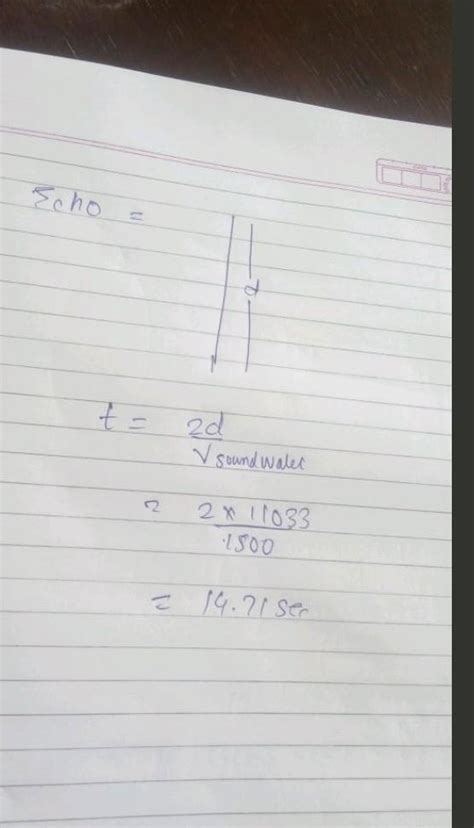 Echo =
d
t = 2d
V sound water
= 2 × 11033
1500
= 14.71 sec